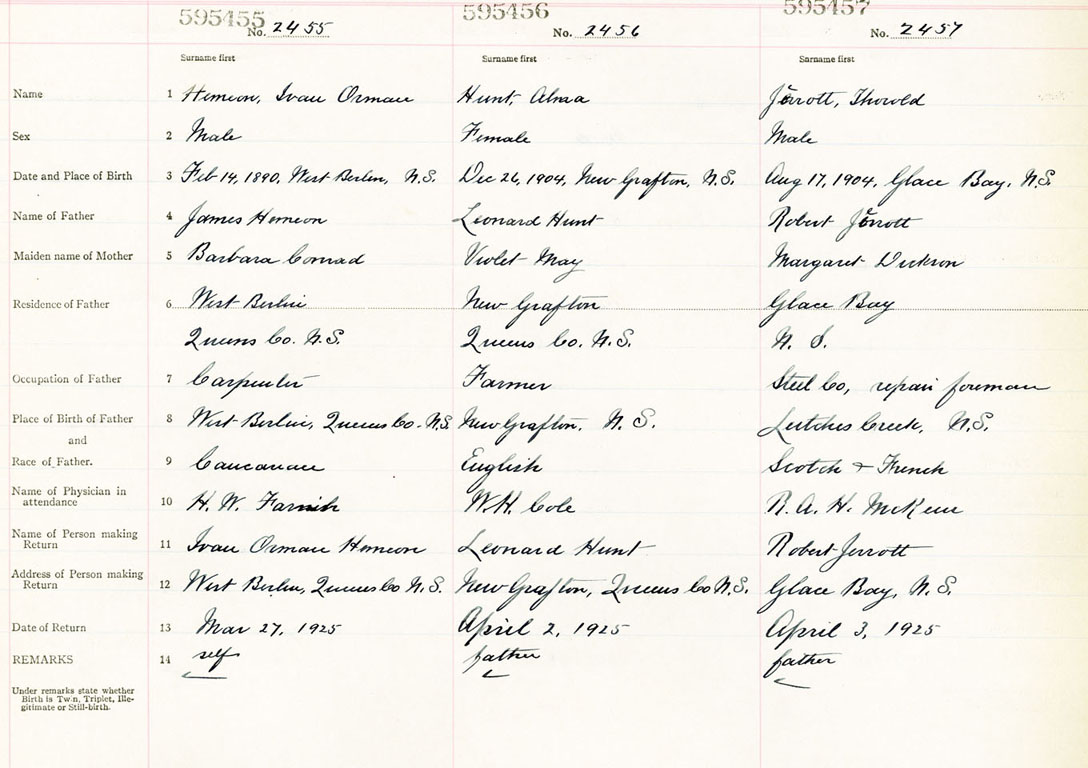 595455 595456 595457
No. 2455 No. 2456 No. 2457
Surname first Surname first Surname first
Name 1 Hemeon, Ivan Orman Hunt, Alma Jerrott, Thorold
Sex 2 Male Female Male
Date and Place of Birth 3 Feb 14, 1890, West Berlin, N.S. Dec 26, 1904, New Grafton, N.S. Aug 17, 1904, Glace Bay, N.S.
Name of Father 4 James Hemeon Leonard Hunt Robert Jerrott
Maiden name of Mother 5 Barbara Conrad Violet May Margaret Dickson
Residence of Father 6 West Berlin New Grafton Glace Bay
Queens Co. N.S. Queens Co. N.S. N. S.
Occupation of Father 7 Carpenter Farmer Steel Co, repair foreman
Place of Birth of Father 8 West Berlin, Queens Co. N.S. New Grafton, N. S. Leitches Creek, N.S.
and
Race of Father. 9 Caucanau English Scotch + French
Name of Physician in
attendance 10 H. W. Farnish W. H. Cole R. A. H. McKeen
Name of Person making
Return 11 Ivan Orman Hemeon Leonard Hunt Robert Jerrott
Address of Person making
Return 12 West Berlin, Queens Co N.S. New Grafton, Queens Co N.S. Glace Bay, N.S.
Date of Return 13 Mar 27, 1925 April 2, 1925 April 3, 1925
REMARKS 14 self father father
Under remarks state whether
Birth is Twin, Triplet, Ille-
gitimate or Still-birth.